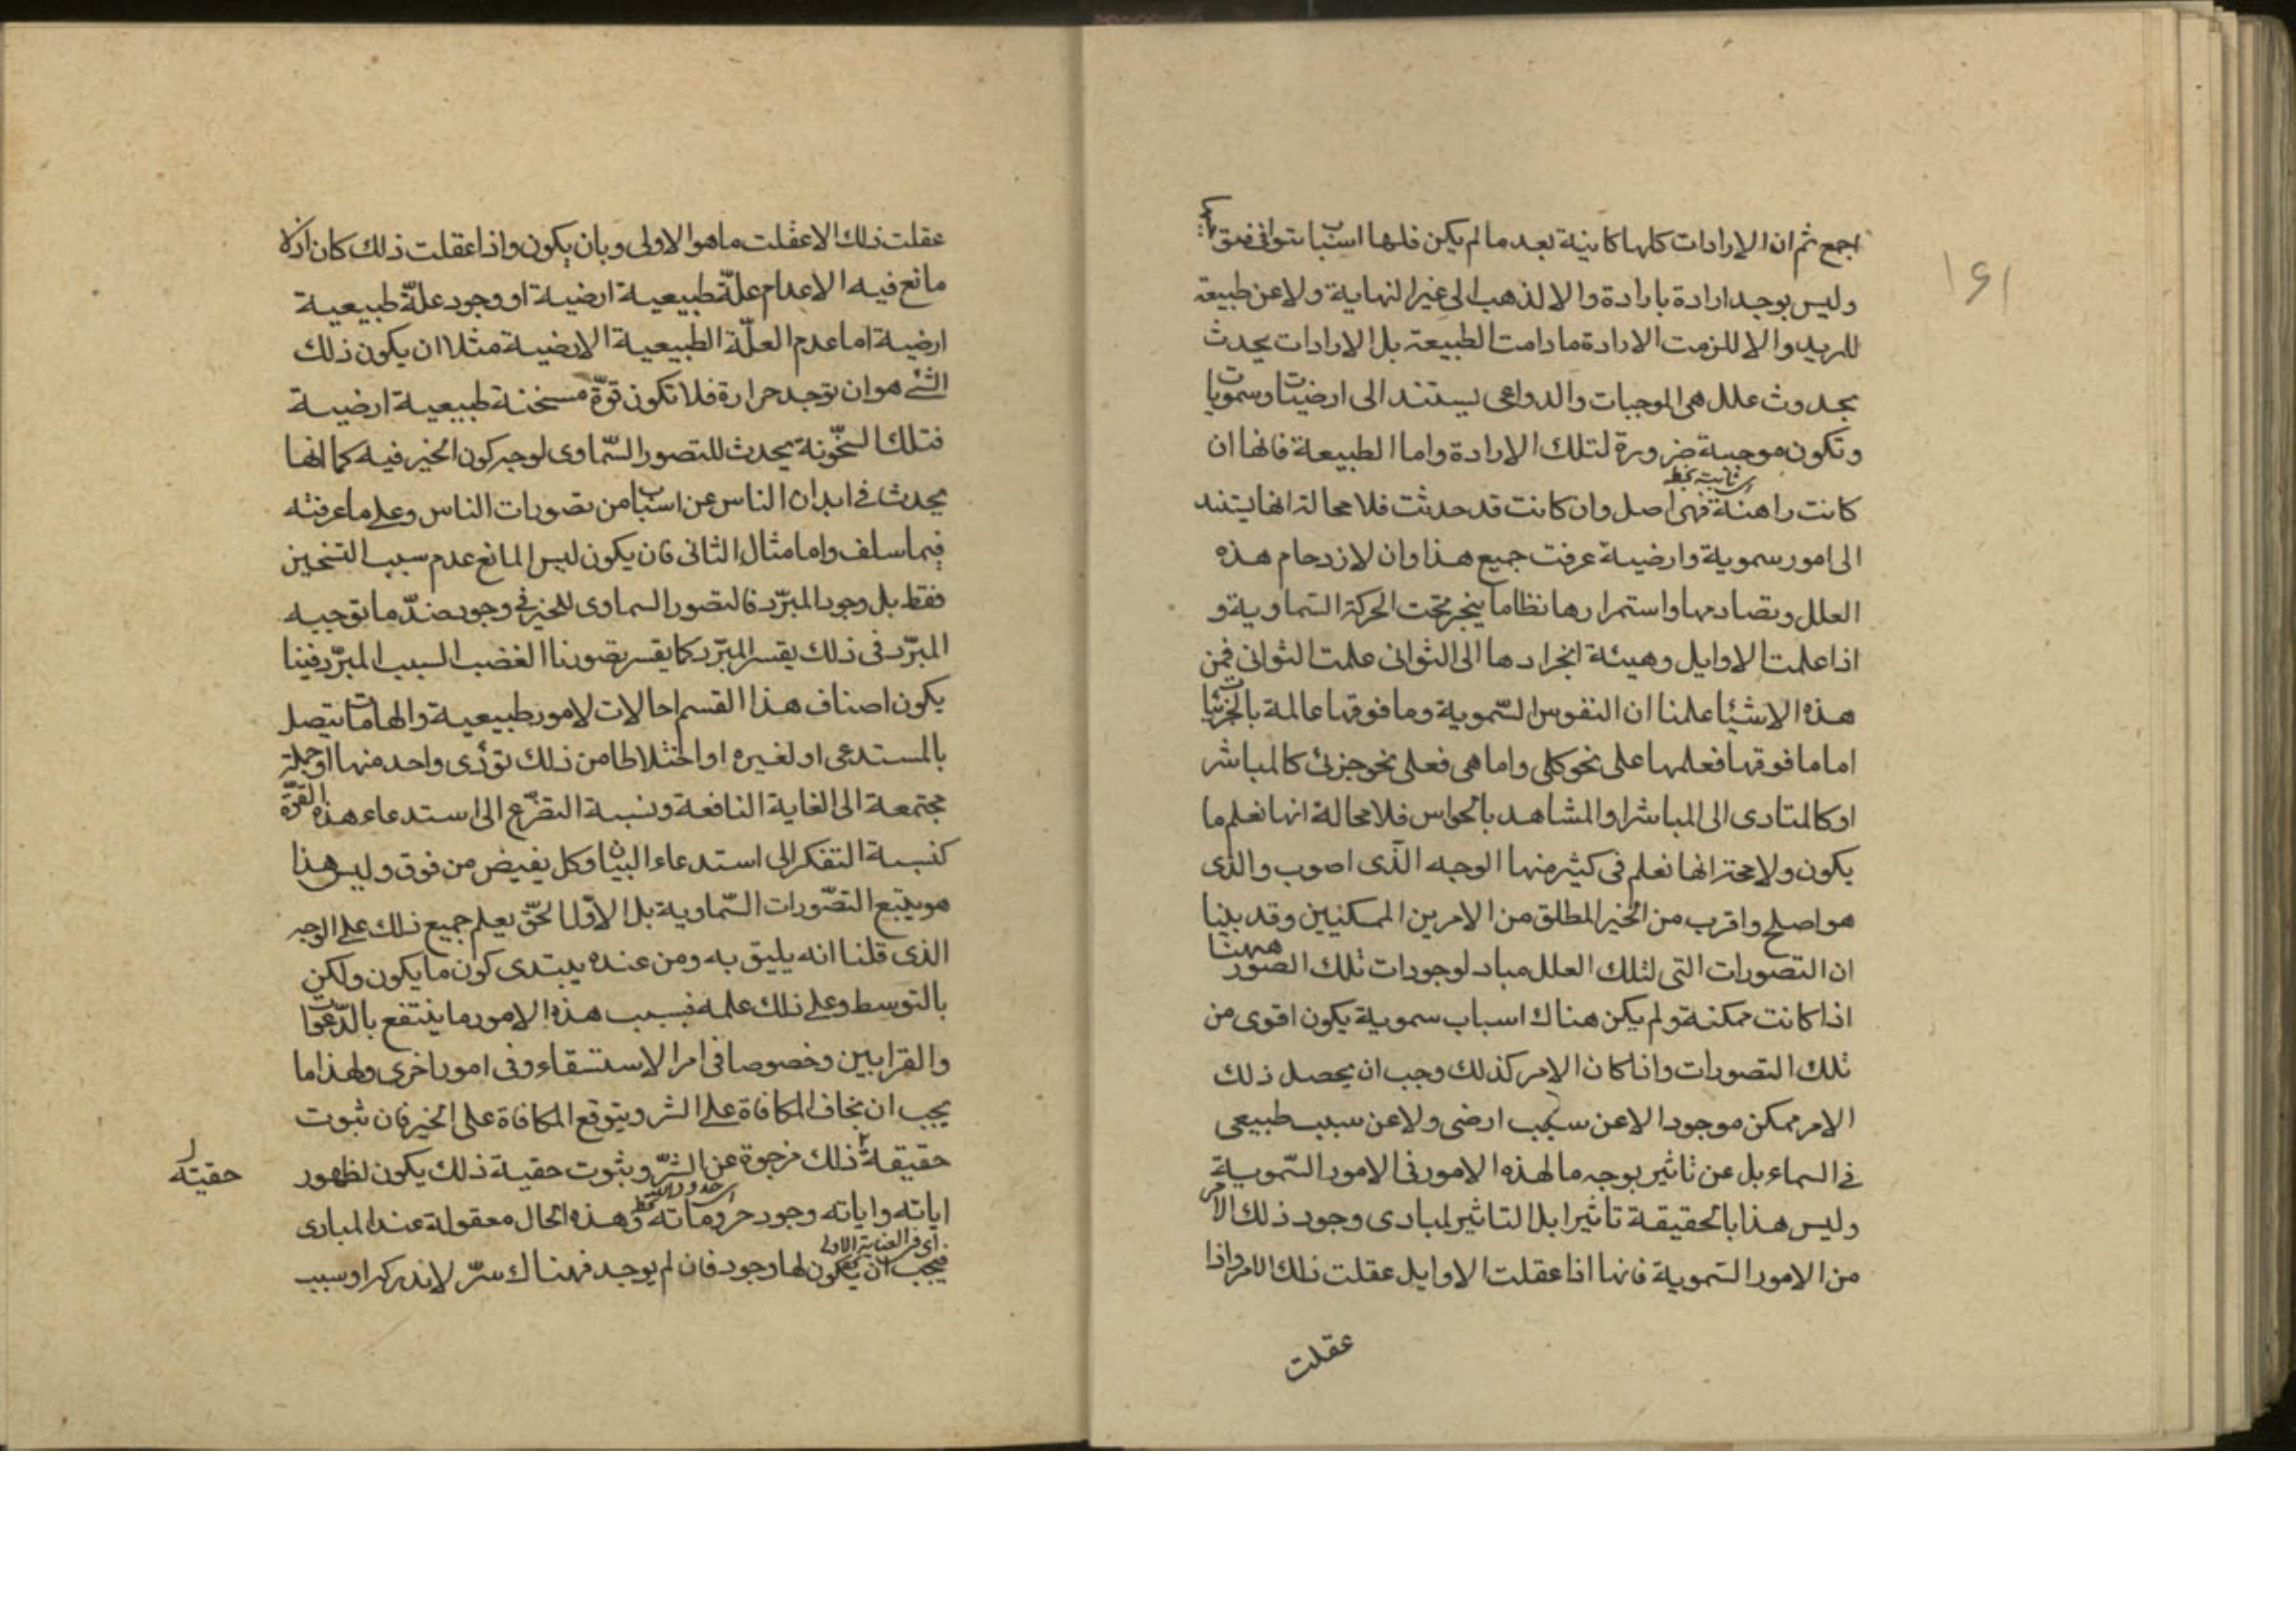 ١٤١
اجمع ثم ان الارادات كلها كاينة بعد ما لم يكن فلها اسباب يتوافى
وليس يوجد ارادة بارادة والا لذهب الى غير النهاية ولا عن طبيعة
للمريد والا للزمت الارادة مادامت الطبيعة بل الارادات يحدث
بحدوث علل هى الموجبات والدواعى يستند الى ارضيات وسمويات
وتكون موجبة ضرورة لتلك الارادة واما الطبيعة فانها ان
كانت راهنة فهى اصل وان كانت قد حدثت فلا محالة انها يستند
الى امور سموية وارضية عرفت جميع هذا وان لازدحام هذه
العلل وتصادمها واستمرارها نظاما ينجر تحت الحركة السماوية و
اذا علمت الاوايل وهيئة انجرارها الى الثوانى علمت الثوانى فمن
هذه الاشيا علمنا ان النفوس السموية وما فوقها عالمة بالجزئيات
اما ما فوقها فعلمها على نحو كلى واما هى فعلى نحو جزئ كالمباشر
او كالمتادى الى المباشر او المشاهد بالحواس فلا محالة انها تعلم ما
يكون ولا محة انها تعلم فى كثير منها الوجه الذى اصوب والذى
هو اصلح واقرب من الخير المطلق من الامرين الممكنيين وقد بينا
ان التصورات التى لتلك العلل مباد لوجودات تلك الصور ههنا
اذا كانت ممكنة ولم يكن هناك اسباب سموية يكون اقوى من
تلك التصورات واذا كان الامر كذلك وجب ان يحصل ذلك
الامر ممكن موجودا لا عن سبب ارضى ولا عن سبب طبيعى
فى السماء بل عن تاثير بوجه ما لهذه الامور فى الامور السموية
وليس هذا بالحقيقة تاثيرا بل التاثير لمبادى وجود ذلك الامر
من الامور السموية فانها اذا عقلت الاوايل عقلت ذلك الامر واذا
عقلت
عقلت ذلك الا عقلت ما هو الاولى وبان يكون واذا عقلت ذلك كان اذ لا
مانع فيه الا عدام علّة طبيعية ارضية او وجود علّة طبيعية
ارضية اما عدم العلّة الطبيعية الارضية مثلا ان يكون ذلك
الشئ هو ان توجد حرارة فلا تكون قوّة مسخنة طبيعية ارضية
فتلك السخّونة يحدث للتصور السّماوى لوجه كون الخير فيه كما انها
يحدث فى ابدان الناس عن اسباب من تصورات الناس وعلى ما عرفته
فيما سلف واما مثال الثانى فان يكون ليس المانع عدم سبب التسخين
فقط بل وجود المبرّد فالتصور السماوى للخير فى وجود ضدّ ما توجبه
المبرّد فى ذلك يقسر المبرّد كما يقسر تصورنا الغضب السبب المبرّد فينا
يكون اصناف هذا القسم احالات لامور طبيعية والهامات يتصل
بالمستدعى او لغيره او اختلاطا من ذلك تؤدى واحد منها او جملة
مجتمعة الى الغاية النافعة ونسبة التضرّع الى استدعاء هذه القوّة
كنسبة التفكر الى استدعاء البيان وكل يفيض من فوق وليس هذا
هو يتبع التصّورات السّماوية بل الاوّل الحقّ يعلم جميع ذلك على الوجه
الذى قلنا انه يليق به ومن عنده يبتدى كون ما يكون ولكن
بالتوسط وعلى ذلك علمه فبسبب هذه الامور ما ينتفع بالدّعوات
والقرابين وخصوصا فى امر الاستسقاء وفى امور اخرى ولهذا ما
يجب ان يخاف المكافاة على الشر ويتوقع المكافاة على الخير فان ثبوت
حقيقة ذلك مزجرة عن الشرّ وبثبوت حقية ذلك يكون لظهور
حقيته
اياته واياته وجود حروماته وهذه الحال معقولة عند المبادى
اى فى العناية الاولى
فيجب ان يكون لها وجود فان لم يوجد فهناك سرّ لا ندركه او سبب